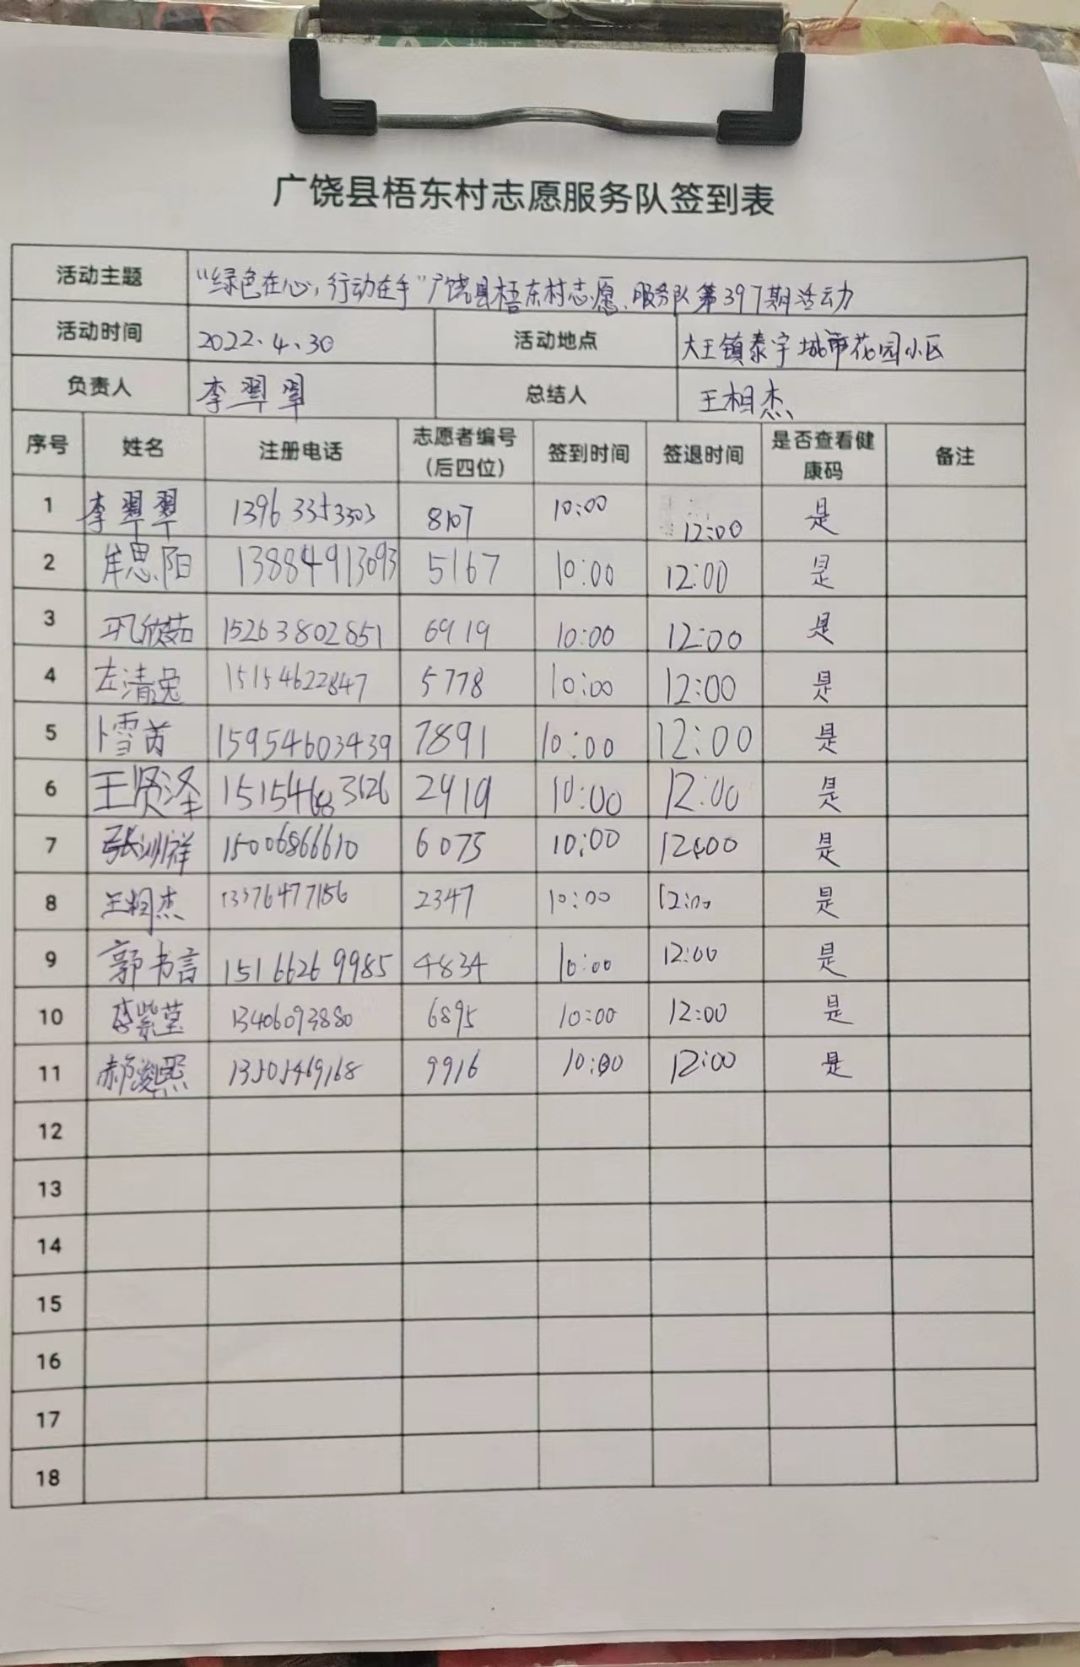 广饶县梧东村志愿服务队签到表
活动主题 “绿色在心，行动在手”广饶县梧东村志愿服务队第397期活动
活动时间 2022.4.30 活动地点 大王镇泰宇城市花园小区
负责人 李翠翠 总结人 王相杰
序号 姓名 注册电话 志愿者编号（后四位） 签到时间 签退时间 是否查看健康码 备注
1 李翠翠 13963353303 8107 10:00 12:00 是
2 牟思阳 13884913093 5167 10:00 12:00 是
3 巩欣茹 15263802851 6919 10:00 12:00 是
4 左清兔 15154622847 5778 10:00 12:00 是
5 卜雪芮 15954603439 7891 10:00 12:00 是
6 王贤泽 2919 10:00 12:00 是
7 15006866610 6075 10:00 12:00 是
8 王相杰 13376477156 2347 10:00 12:00 是
9 郭书言 15166269985 4834 10:00 12:00 是
10 李紫莹 13406093880 6895 10:00 12:00 是
11 13505469168 9916 10:00 12:00 是
12
13
14
15
16
17
18